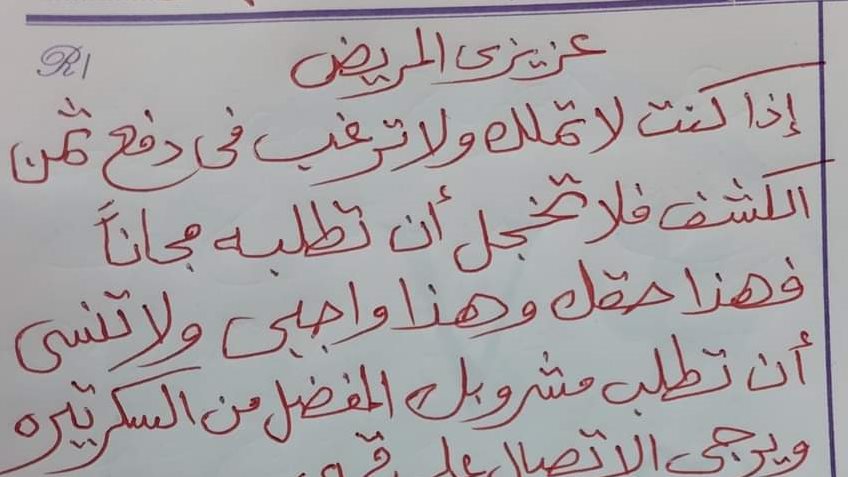 R/
عزيزى المريض
إذا كنت لا تملك ولا ترغب فى دفع ثمن
الكشف فلا تخجل أن تطلبه مجاناً
فهذا حقك وهذا واجبى ولا تنسى
أن تطلب مشروبك المفضل من السكرتيره
ويرجى الاتصال على